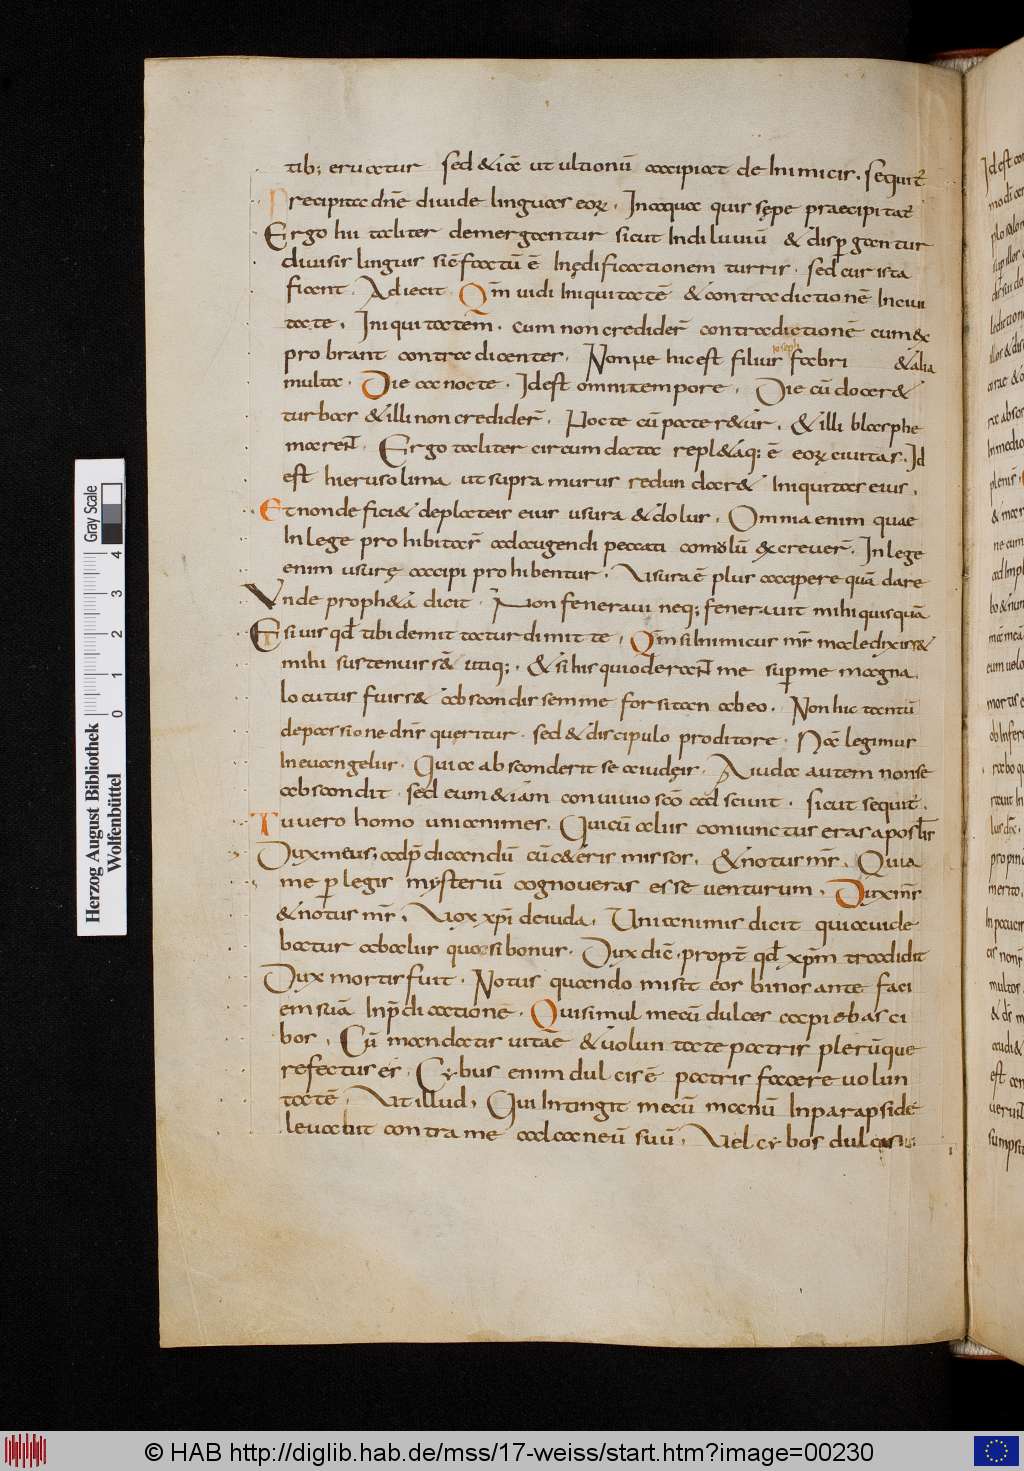 tib; eruatur sed &iā ut ultionū accipiat de inimicis. sequit̄
Precipita dn̄e divide linguas eoꝝ. Inaqua quis sępe praecipitat̄
Ergo hii taliter demergantur sicut Indiluuiū & disꝑgantur
diuisis linguis sic̄ factū ē Inędificationem turris. sed cur ista
fiant. Adiecit. Qm̄ uidi Iniquitatē & contradictionē Inciui
tate. Iniquitatem. cum non credider̄ contradictionē cum ex
probrant contradicentes. Nonne hic est filius fabri &alia
ioseph
multa. Die ac nocte. Idest omni tempore. Die cū docer&
turbas &illi non credider̄. Nocte cū pater&ur. & illi blasphe
marent̄. Ergo taliter circumdata repl&aq; ē eoꝝ ciuitas. Id
est hierusolima ut supra murus redundar& Iniquitas eius.
Et non deficie& deplateis eius usura & dolus. Omnia enim quae
In lege prohibita er̄ adaugendi peccati comolū excreuer̄. In lege
enim usurę accipi prohibentur. Usura ē plus accipere quā dare
Unde proph&a dicit. Non feneraui neq; fenerauit mihi quisquā
Et si uis qd̄ tibi demittatur dimitte. Qm̄ si Inimicus ms̄ maledixiss&
mihi sustenuissē utiq;. & si his qui oderant̄ me suꝑ me magna
locutus fuiss& abscondissem me forsitan ab eo. Non hic tantū
depassione dn̄s queritur. sed & discipulo proditore. Nā legimus
In euangeliis. Quia absconderit se aiudęis. A iuda autem non se
abscondit. sed eum &iam conuiuio scō adsciuit. sicut sequit̄.
Tu uero homo unianimes. Qui cū aliis coniunctus eras apostlis
Dux meus, adp̄dicandū cū c&eris missos. & notus ms̄. Quia
me ꝑ legis mysteriū cognoueras esse uenturum. Dux ms̄
& notus ms̄. Uox xp̄i deiuda. Unianimis dicit quia uide
batur ab aliis quasi bonus. Dux dic̄. propt̄ qd̄ xp̄m tradidit
Dux mortis fuit. Notus quando misit eos binos ante faci
em suā Inp̄dicationē. Qui simul mecū dulces capiebas ci
bos. Cū mandatis uitae & uoluntate patris plerūque
refectus es. Cybus enim dulcis ē patris facere uolun
tatē. Ut illud. Qui Intingit mecū manū Inparapside
leuabit contra me calcaneū suū. Uel cybos dulcis
Herzog August Bibliothek
Wolfenbüttel
Gray Scale
0 1 2 3 4
© HAB http://diglib.hab.de/mss/17-weiss/start.htm?image=00230